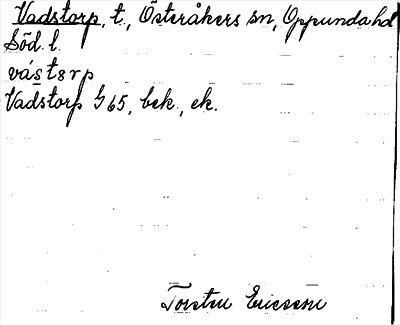 Vadstorp, t., Österåkers sn, Oppunda hd
Söd. l.
västsrp
Vadstorp G 65, bek., ek.
Torsten Ericsson